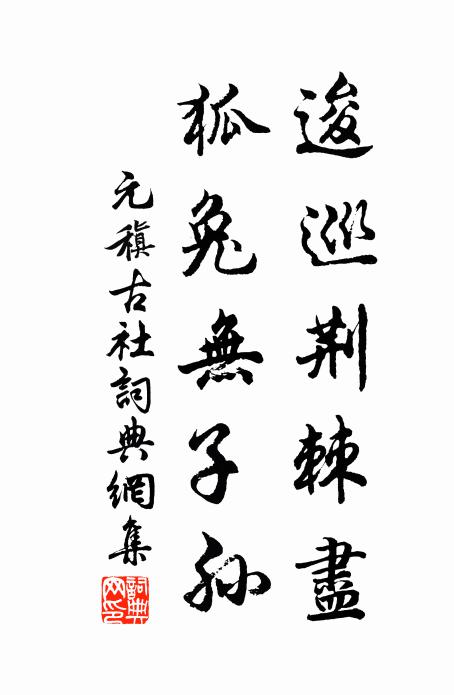 逡巡荆棘盡
狐兔無子孫
元稹古社詞典網集
詞典網印